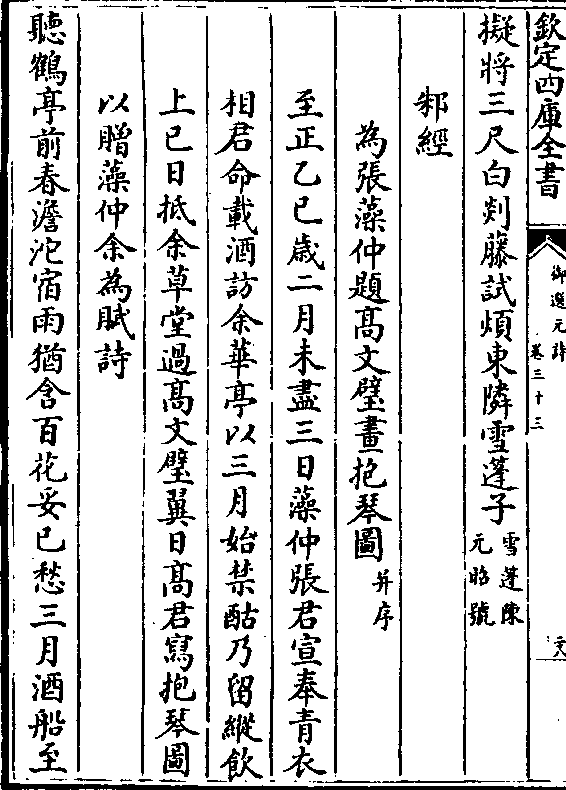 欽定四庫全書
御選元詩
卷三十三
擬將三尺白剡藤試煩東隣雪蓬子雪蓬陳元昭號
邾經
為張藻仲題髙文璧畫抱琴圖并序
至正乙巳歳二月未盡三日藻仲張君宣奉青衣
相君命載酒訪余華亭以三月始禁酤乃留縱飲
上巳日抵余草堂過髙文璧翼日髙君寫抱琴圖
以贈藻仲余為賦詩
聽鶴亭前春澹沱宿雨猶含百花妥已愁三月酒船至